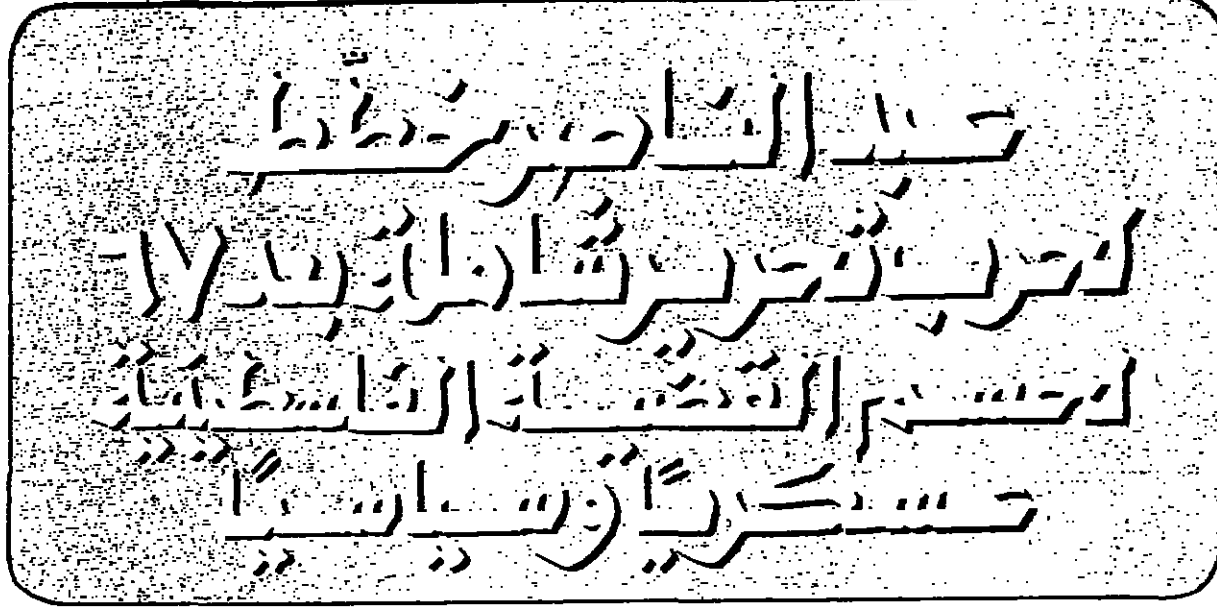 عبد الناصر خطّط
لحرب تحرير شاملة بعد ٦٧
لحسم القضية الفلسطينية
عسكرياً وسياسياً